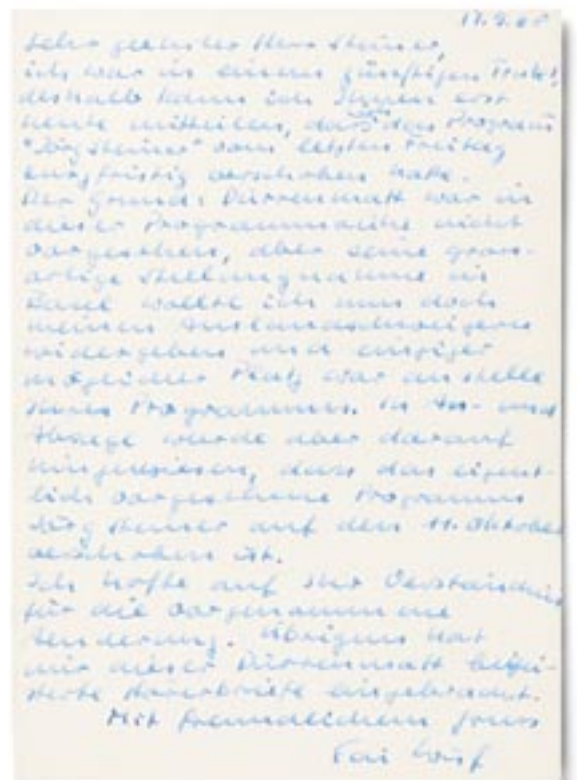 17.9.68
Sehr geehrter Herr Steiner,
ich war in einem günstigen
deshalb kann ich Ihnen erst
heute mitteilen, dass das Programm
"Jörg Steiner" vom letzten Freitag
kurzfristig verschoben habe.
Der Grund: Dürrenmatt war in
dieser Programmreihe nicht
vorgesehen, aber seine gross-
artige Stellungnahme in
Basel wollte ich nun doch
meinen Auslandschweizern
widergeben und einziger
möglicher Platz war anstelle
Ihres Programmes. In An- und
Absage wurde aber darauf
hingewiesen, dass das eigent-
lich vorgesehene Programm
Jörg Steiner auf den 11. Oktober
verschoben ist.
Ich hoffe auf Ihr Verständnis
für die vorgenommene
Aenderung. Übrigens hat
mir dieser Dürrenmatt begei-
sterte Hörerbriefe eingebracht.
Mit freundlichem Gruss